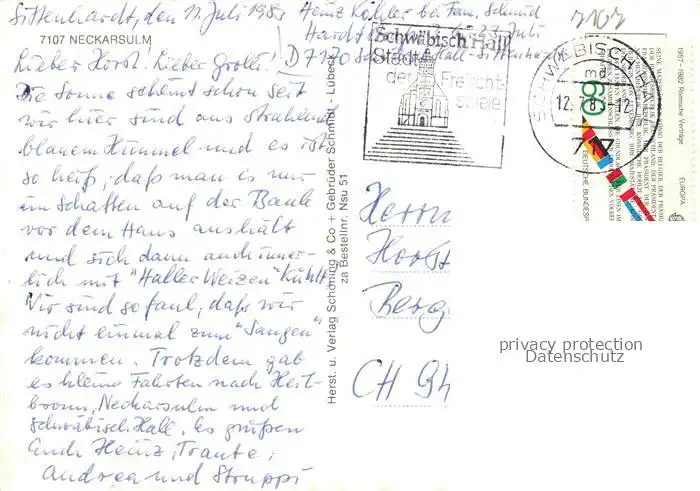 Sittenhardt, den 11. Juli 1983
Heinz Köhler bei Fam. Schmid
Hardt 23 Juli
D 7170 Schwäb. Hall-Sittenhardt
7107 NECKARSULM
Lieber Horst! Lieber Grolli!
Die Sonne scheint schon seit
wir hier sind aus strahlend
blauem Himmel und es ist
so heiß, daß man es nur
im Schatten auf der Bank
vor dem Haus aushält
und sich dann auch inner-
lich mit "Haller Weizen" kühlt.
Wir sind so faul, daß wir
nicht einmal zum "Saugen"
kommen. Trotzdem gab
es kleine Fahrten nach Heil-
bronn, Neckarsulm und
Schwäbisch Hall. Es grüßen
Euch Heinz, Traute,
Andrea und Struppi
Herst. u. Verlag Schöning & Co + Gebrüder Schmidt - Lübeck
za Bestellnr. Nsu 51
7107
Schwäbisch Hall
Stadt
der Freilicht-
spiele
SCHWÄBISCH HALL
md
12.-7.83-12
717
60
DEUTSCHE BUNDESP
1957-1982 Römische Verträge
EUROPA
Herrn
Horst
Berg
CH 94
privacy protection
Datenschutz